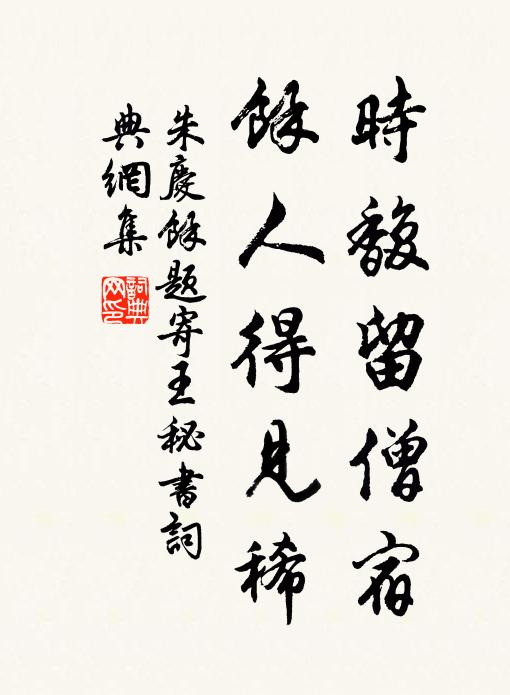 時馥留僧宿
餘人得見稀
朱慶餘題寄王秘書詞
典網集
詞典網印